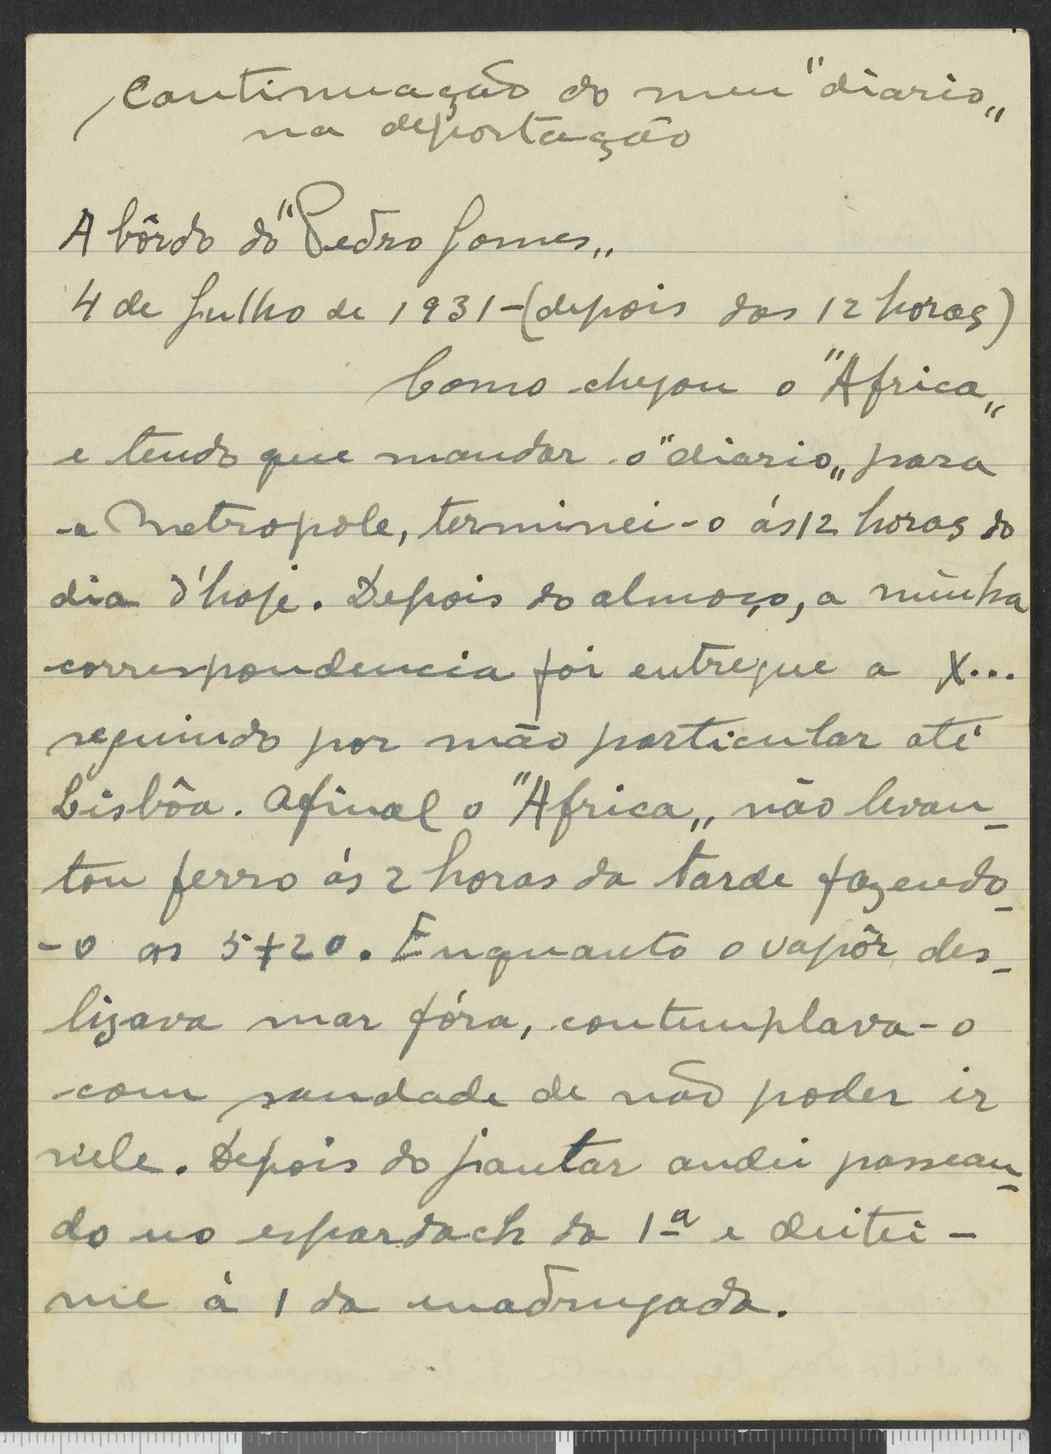 Continuação do meu "diario„
na deportação
A bôrdo do "Pedro Gomes„
4 de Julho de 1931-(depois das 12 horas)
Como chegou o "Africa„
e tendo que mandar o "diario„ para
a Metropole, terminei-o ás 12 horas do
dia d'hoje. Depois do almoço, a minha
correspondencia foi entregue a X...
seguindo por mão particular até
Lisbôa. Afinal o "Africa„ não levan-
tou ferro ás 2 horas da tarde fazendo-
-o as 5+20. Enquanto o vapôr des-
lizava mar fóra, contemplava-o
com saudade de não poder ir
nele. Depois do jantar andei passean-
do no espardach da 1ª e deitei-
me á 1 da madrugada.